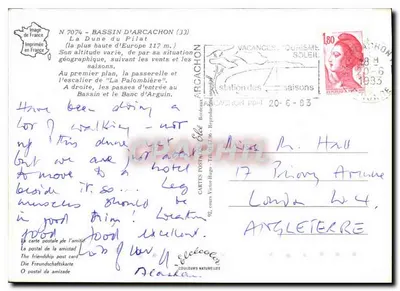 Image
de France
Imprimée
en France
N 7074 - BASSIN D'ARCACHON (33)
La Dune du Pilat
(la plus haute d'Europe 117 m.)
Son altitude varie, de par sa situation
géographique, suivant les vents et les
saisons.
Au premier plan, la passerelle et
l'escalier de "La Palombière".
A droite, les passes d'entrée au
Bassin et le Banc d'Arguin.
Have been doing a
lot of walking - not
up this dune
but we are just about
to move to a hotel
beside it so... Leg
muscles should be
in good trim! Location
good food excellent.
Lots of love
La carte postale de l'amitié
The friendship post card
Die Freundschaftskarte
O postal da amizade
elcé color
COULEURS NATURELLES
ARCACHON
VACANCES TOURISME
SOLEIL
station des saisons
20-6-83
1,80
1983
M. Hall
17 Priory Avenue
London W.4.
ANGLETERRE